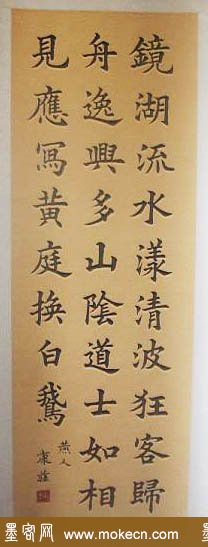 鏡湖流水漾清波狂客歸
舟逸興多山陰道士如相
見應冩黄庭換白鵝
燕人
康
墨客网 www.mokecn.com